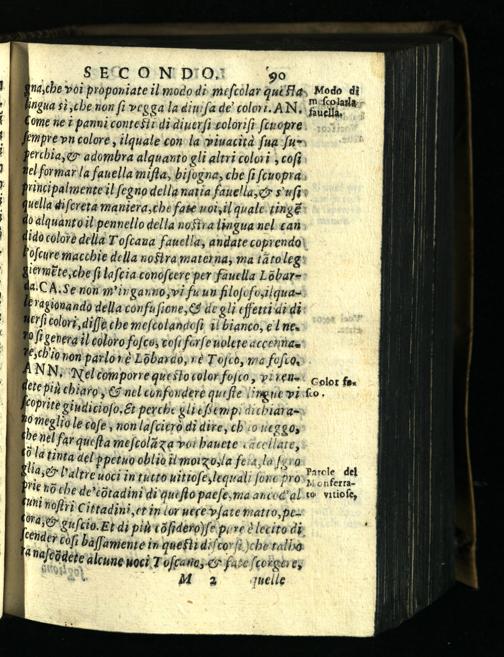 SECONDO. 90
gna, che voi proponiate il modo di mescolar questa
lingua sì, che non si vegga la diuisa de' colori. AN.
Come ne i panni contesti di diuersi colori si scuopre
sempre vn colore, ilquale con la viuacità sua su-
perchia, & adombra alquanto gli altri colori, cosi
nel formar la fauella mista, bisogna, che si scuopra
principalmente il segno della natia fauella, & s'usi
quella discreta maniera, che fate uoi, il quale tingē
do alquanto il pennello della nostra lingua nel can
dido colore della Toscana fauella, andate coprendo
l'oscure macchie della nostra materna, ma tāto leg
giermēte, che si lascia conoscere per fauella Lōbar-
da. CA. Se non m'inganno, vi fu un filosofo, ilqua-
le ragionando della confusione, & de gli effetti di di
uersi colori, disse, che mescolandosi il bianco, e'l ne-
ro si genera il coloro fosco, cosi forse uolete accenna-
re, ch'io non parlo nè Lōbardo, nè Tosco, ma fosco.
ANN. Nel comporre questo color fosco, vi ren-
dete più chiaro, & nel confondere queste lingue vi
scoprite giudicioso. Et perche gli essempi dichiara-
no meglio le cose, non lascierò di dire, ch'io ueggo,
che nel far questa mescolāza voi hauete cācellate,
cō la tinta del ppetuo oblio il moizo, la feia, la
glia, & l'altre uoci in tutto uitiose, lequali sono pro
prie nō che de' cōtadini di questo paese, ma ancod'al
cuni nostri Cittadini, et in lor uece vsate matto, pe-
cora, & guscio. Et di più cōsidero (se pure è lecito di
scender cosi bassamente in questi discorsi) che talho
ra nascōdete alcune uoci Toscane, & fate scorgere,
M 2 quelle
Modo di
mescolar la
fauella.
Color fo-
sco.
Parole del
Monferra-
to vitiose,